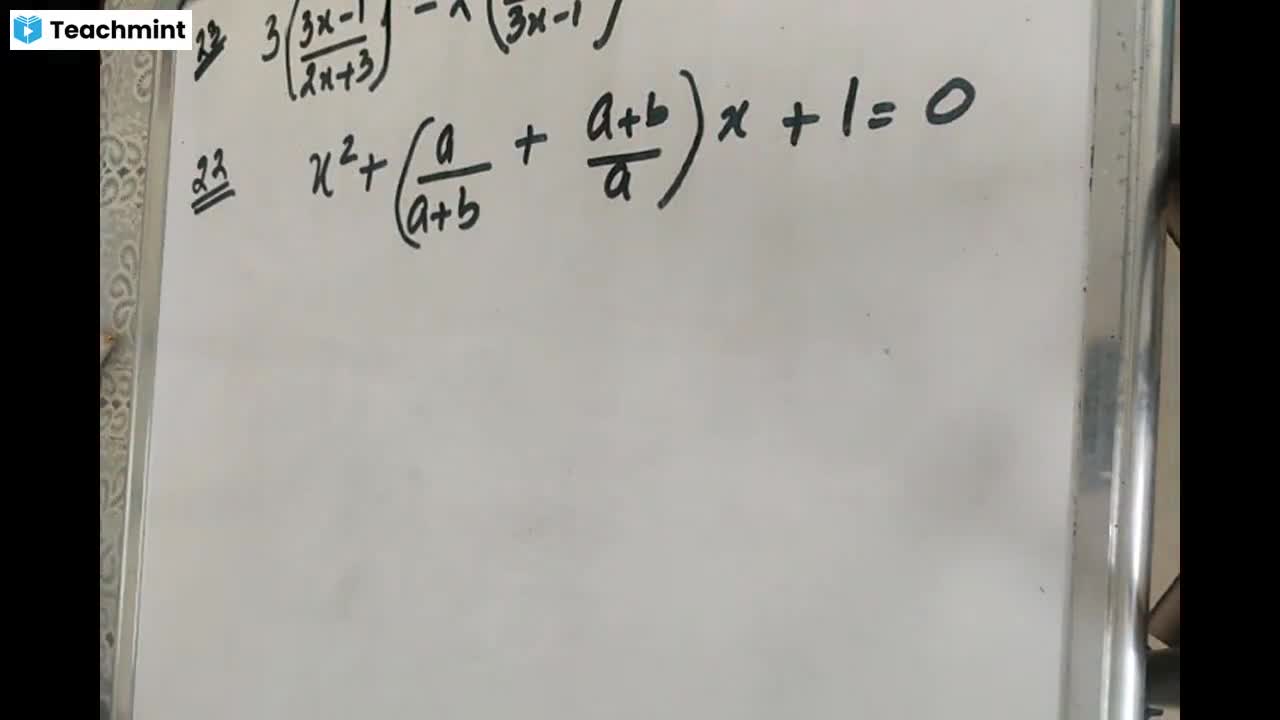 Teachmint
23 3(3x-1/2x+3) - (3x-1)
22 x² + (a/a+b + a+b/a) x + 1 = 0